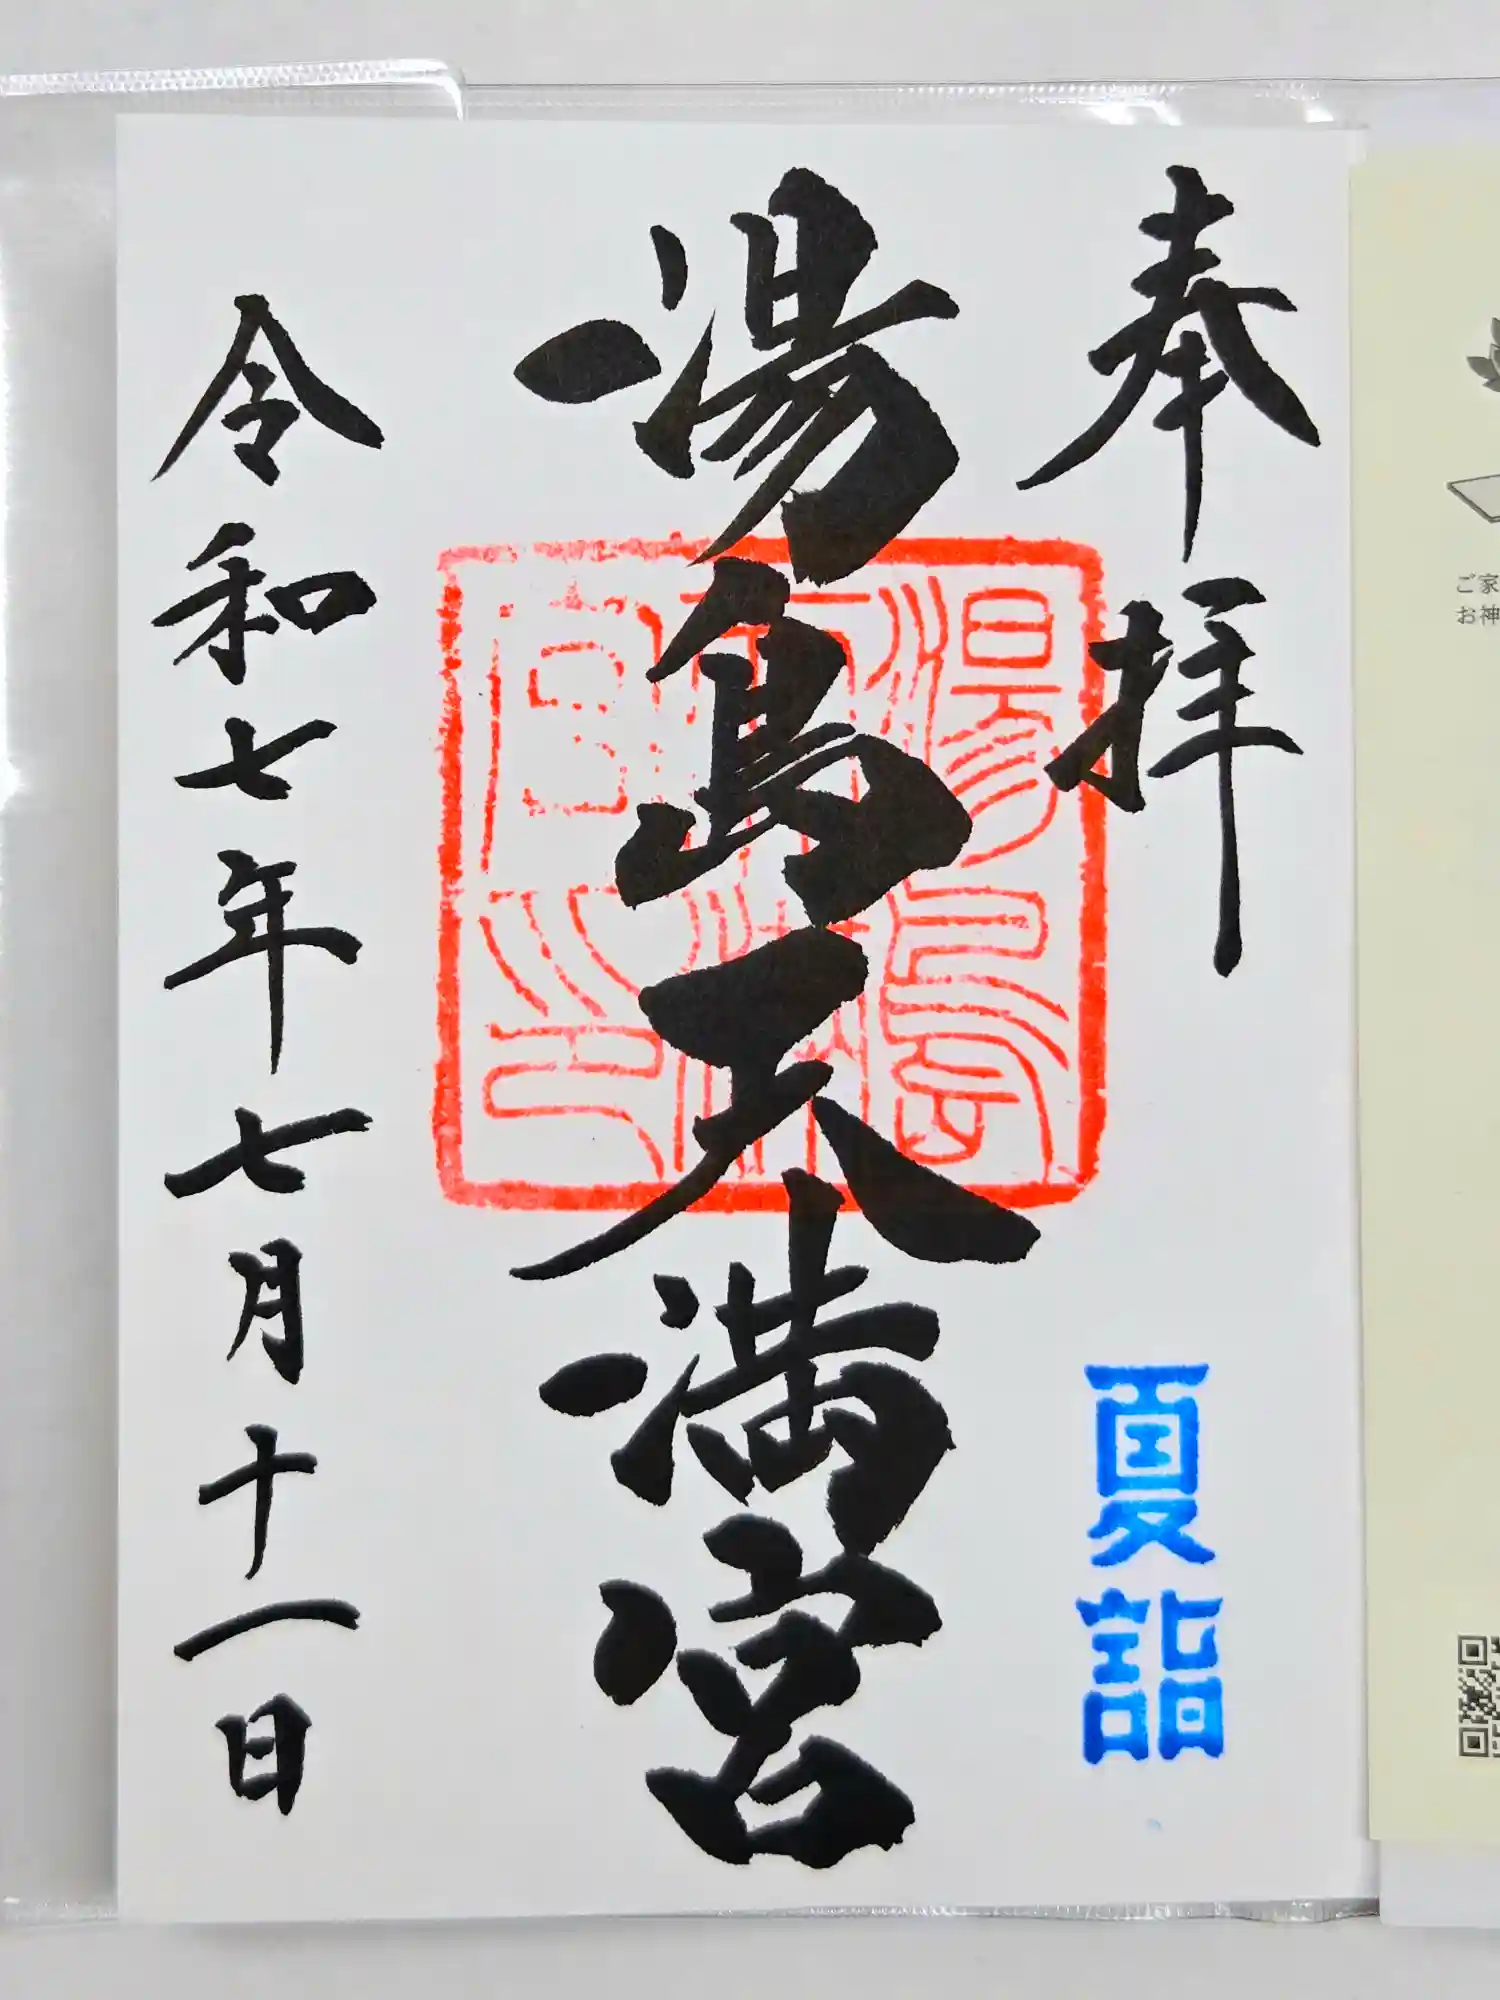 奉拝
夏詣
湯島天満宮
令和七年七月十一日
ご家
お神